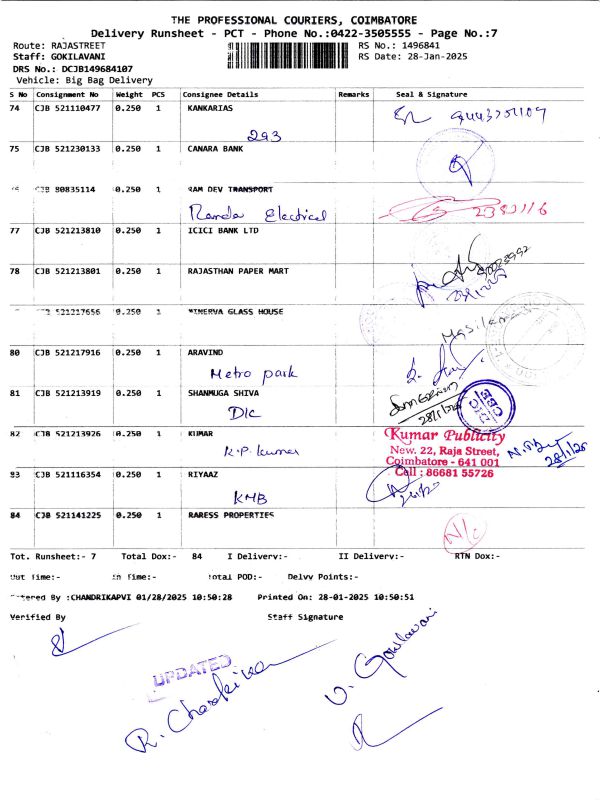 THE PROFESSIONAL COURIERS, COIMBATORE
Delivery Runsheet - PCT - Phone No.:0422-3505555 - Page No.:7
Route: RAJASTREET
Staff: GOKILAVANI
DRS No.: DCJB149684107
Vehicle: Big Bag Delivery
RS No.: 1496841
RS Date: 28-Jan-2025
S No Consignment No Weight PCS Consignee Details Remarks Seal & Signature
74 CJB 521110477 0.250 1 KANKARIAS
293
75 CJB 521230133 0.250 1 CANARA BANK
CJB 80835114 0.250 1 RAM DEV TRANSPORT
Randa Electrical
77 CJB 521213810 0.250 1 ICICI BANK LTD
78 CJB 521213801 0.250 1 RAJASTHAN PAPER MART
CJB 521217656 0.250 1 MINERVA GLASS HOUSE
80 CJB 521217916 0.250 1 ARAVIND
Metro park
81 CJB 521213919 0.250 1 SHANMUGA SHIVA
DIC
82 CJB 521213926 0.250 1 KUMAR
K.P. Kumar
Kumar Publicity
New. 22, Raja Street,
Coimbatore - 641 001
Cell : 86681 55726
28/1/25
83 CJB 521116354 0.250 1 RIYAAZ
KMB
84 CJB 521141225 0.250 1 RARESS PROPERTIES
N/C
Tot. Runsheet:- 7 Total Dox:- 84 I Delivery:- II Delivery:- RTN Dox:-
Out Time:- In Time:- Total POD:- Delvy Points:-
Entered By :CHANDRIKAPVI 01/28/2025 10:50:28 Printed On: 28-01-2025 10:50:51
Verified By Staff Signature
UPDATED
V. Gokilavani